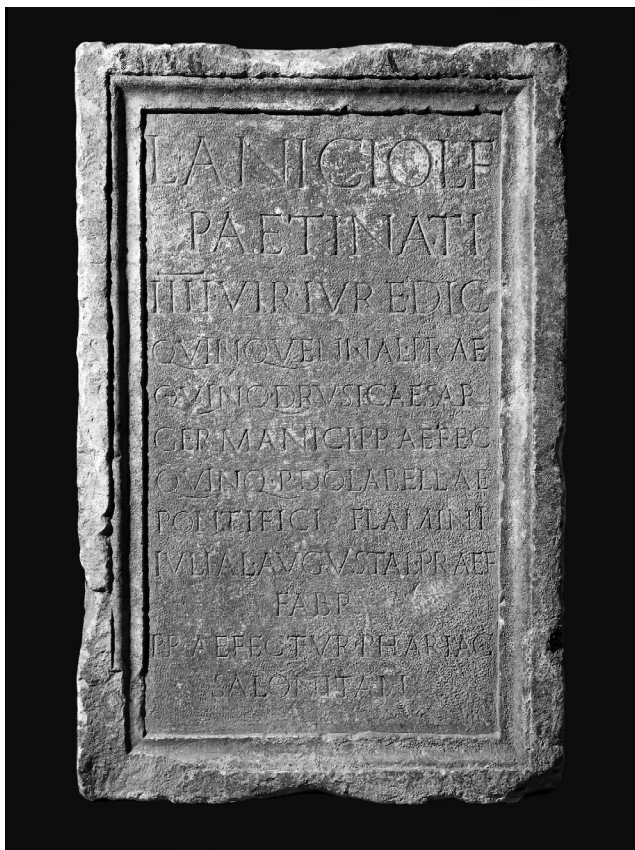 L ANICIO L F
PAETINATI
IIIIVIR IVR EDIC
QVINQVENNAL PRAE
QVINQ DRVSI CAESAR
GERMANICI PRAEFEC
QVINQ P DOLABELLAE
PONTIFICI FLAMINI
IVLIAE AVGVSTAE PRAEF
FABR
PRAEFECTVR PHARIAC
SALONITAN